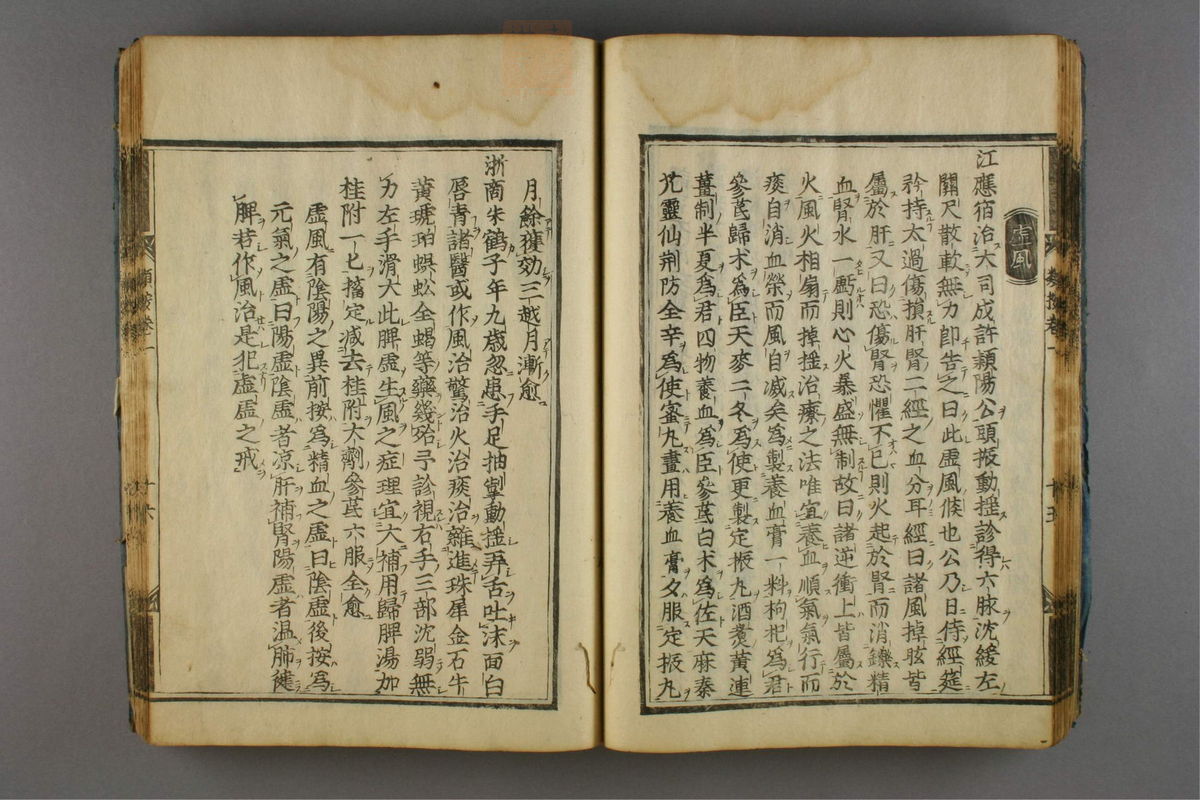 虛風
江應宿治大司成許穎陽公頭振動揺診得六脉沈緩左
關尺散軟無力卽告之曰此虛風候也公乃日侍經筵
矜持太過傷損肝腎二經之血分耳經曰諸風掉眩皆
屬於肝又曰恐傷腎恐懼不已則火起於腎而消鑠精
血腎水一虧則心火暴盛無制故曰諸逆衝上皆屬於
火風火相扇而掉揺治療之法唯宜養血順氣氣行而
痰自消血榮而風自滅矣爲製養血膏一料枸杞爲君
參芪歸术爲臣天麥二冬爲使更製定振丸酒煑黄連
薑制半夏爲君四物養血爲臣參芪白术爲佐天麻秦
艽靈仙荆防全辛爲使蜜丸晝用養血膏夕服定振丸
月餘獲効三越月漸愈
浙商朱鶴子年九歲忽患手足抽掣動揺弄舌吐沫面白
唇青諸醫或作風治驚治火治痰治雜進珠犀金石牛
黄琥珀蜈蚣全蝎等藥幾殆予診視右手三部沈弱無
力左手滑大此脾虛生風之症理宜大補用歸脾湯加
桂附一匕搐定减去桂附大劑參芪六服全愈
虛風有陰陽之異前按爲精血之虛曰陰虛後按爲
元氣之虛曰陽虛陰虛者凉肝補腎陽虛者温肺健
脾若作風治是犯虛虛之戒
類按卷一
十五
類按卷一
十六